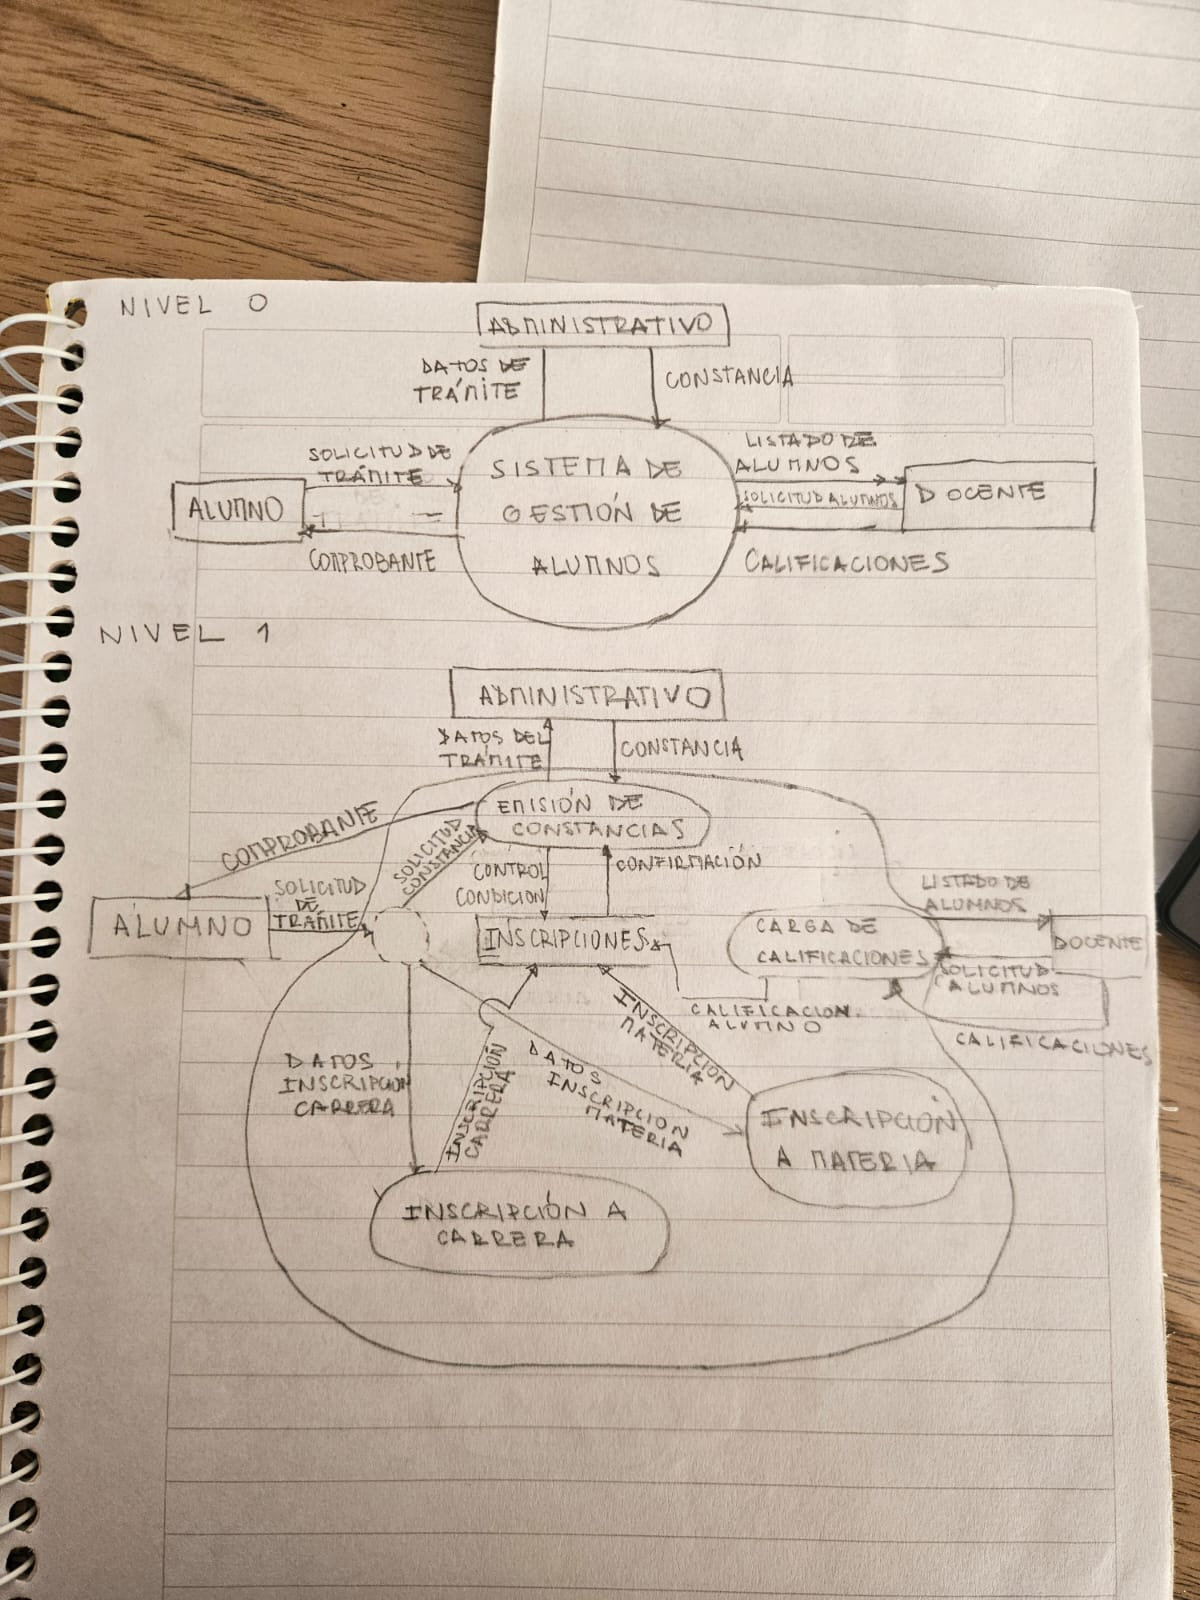 NIVEL 0
ADMINISTRATIVO
DATOS DE
TRÁMITE
CONSTANCIA
SOLICITUD DE
TRÁMITE
ALUMNO
COMPROBANTE
SISTEMA DE
GESTIÓN DE
ALUMNOS
LISTADO DE
ALUMNOS
SOLICITUD ALUMNOS
DOCENTE
CALIFICACIONES
NIVEL 1
ADMINISTRATIVO
DATOS DEL
TRÁMITE
CONSTANCIA
EMISIÓN DE
CONSTANCIAS
COMPROBANTE
SOLICITUD
CONSTANCIA
CONTROL
CONDICION
CONFIRMACIÓN
ALUMNO
SOLICITUD
DE
TRÁMITE
INSCRIPCIONES
CARGA DE
CALIFICACIONES
LISTADO DE
ALUMNOS
DOCENTE
SOLICITUD
ALUMNOS
CALIFICACIONES
CALIFICACION
ALUMNO
INSCRIPCION
MATERIA
DATOS
INSCRIPCION
CARRERA
INSCRIPCIÓN
CARRERA
DATOS
INSCRIPCION
MATERIA
INSCRIPCIÓN
A MATERIA
INSCRIPCIÓN A
CARRERA